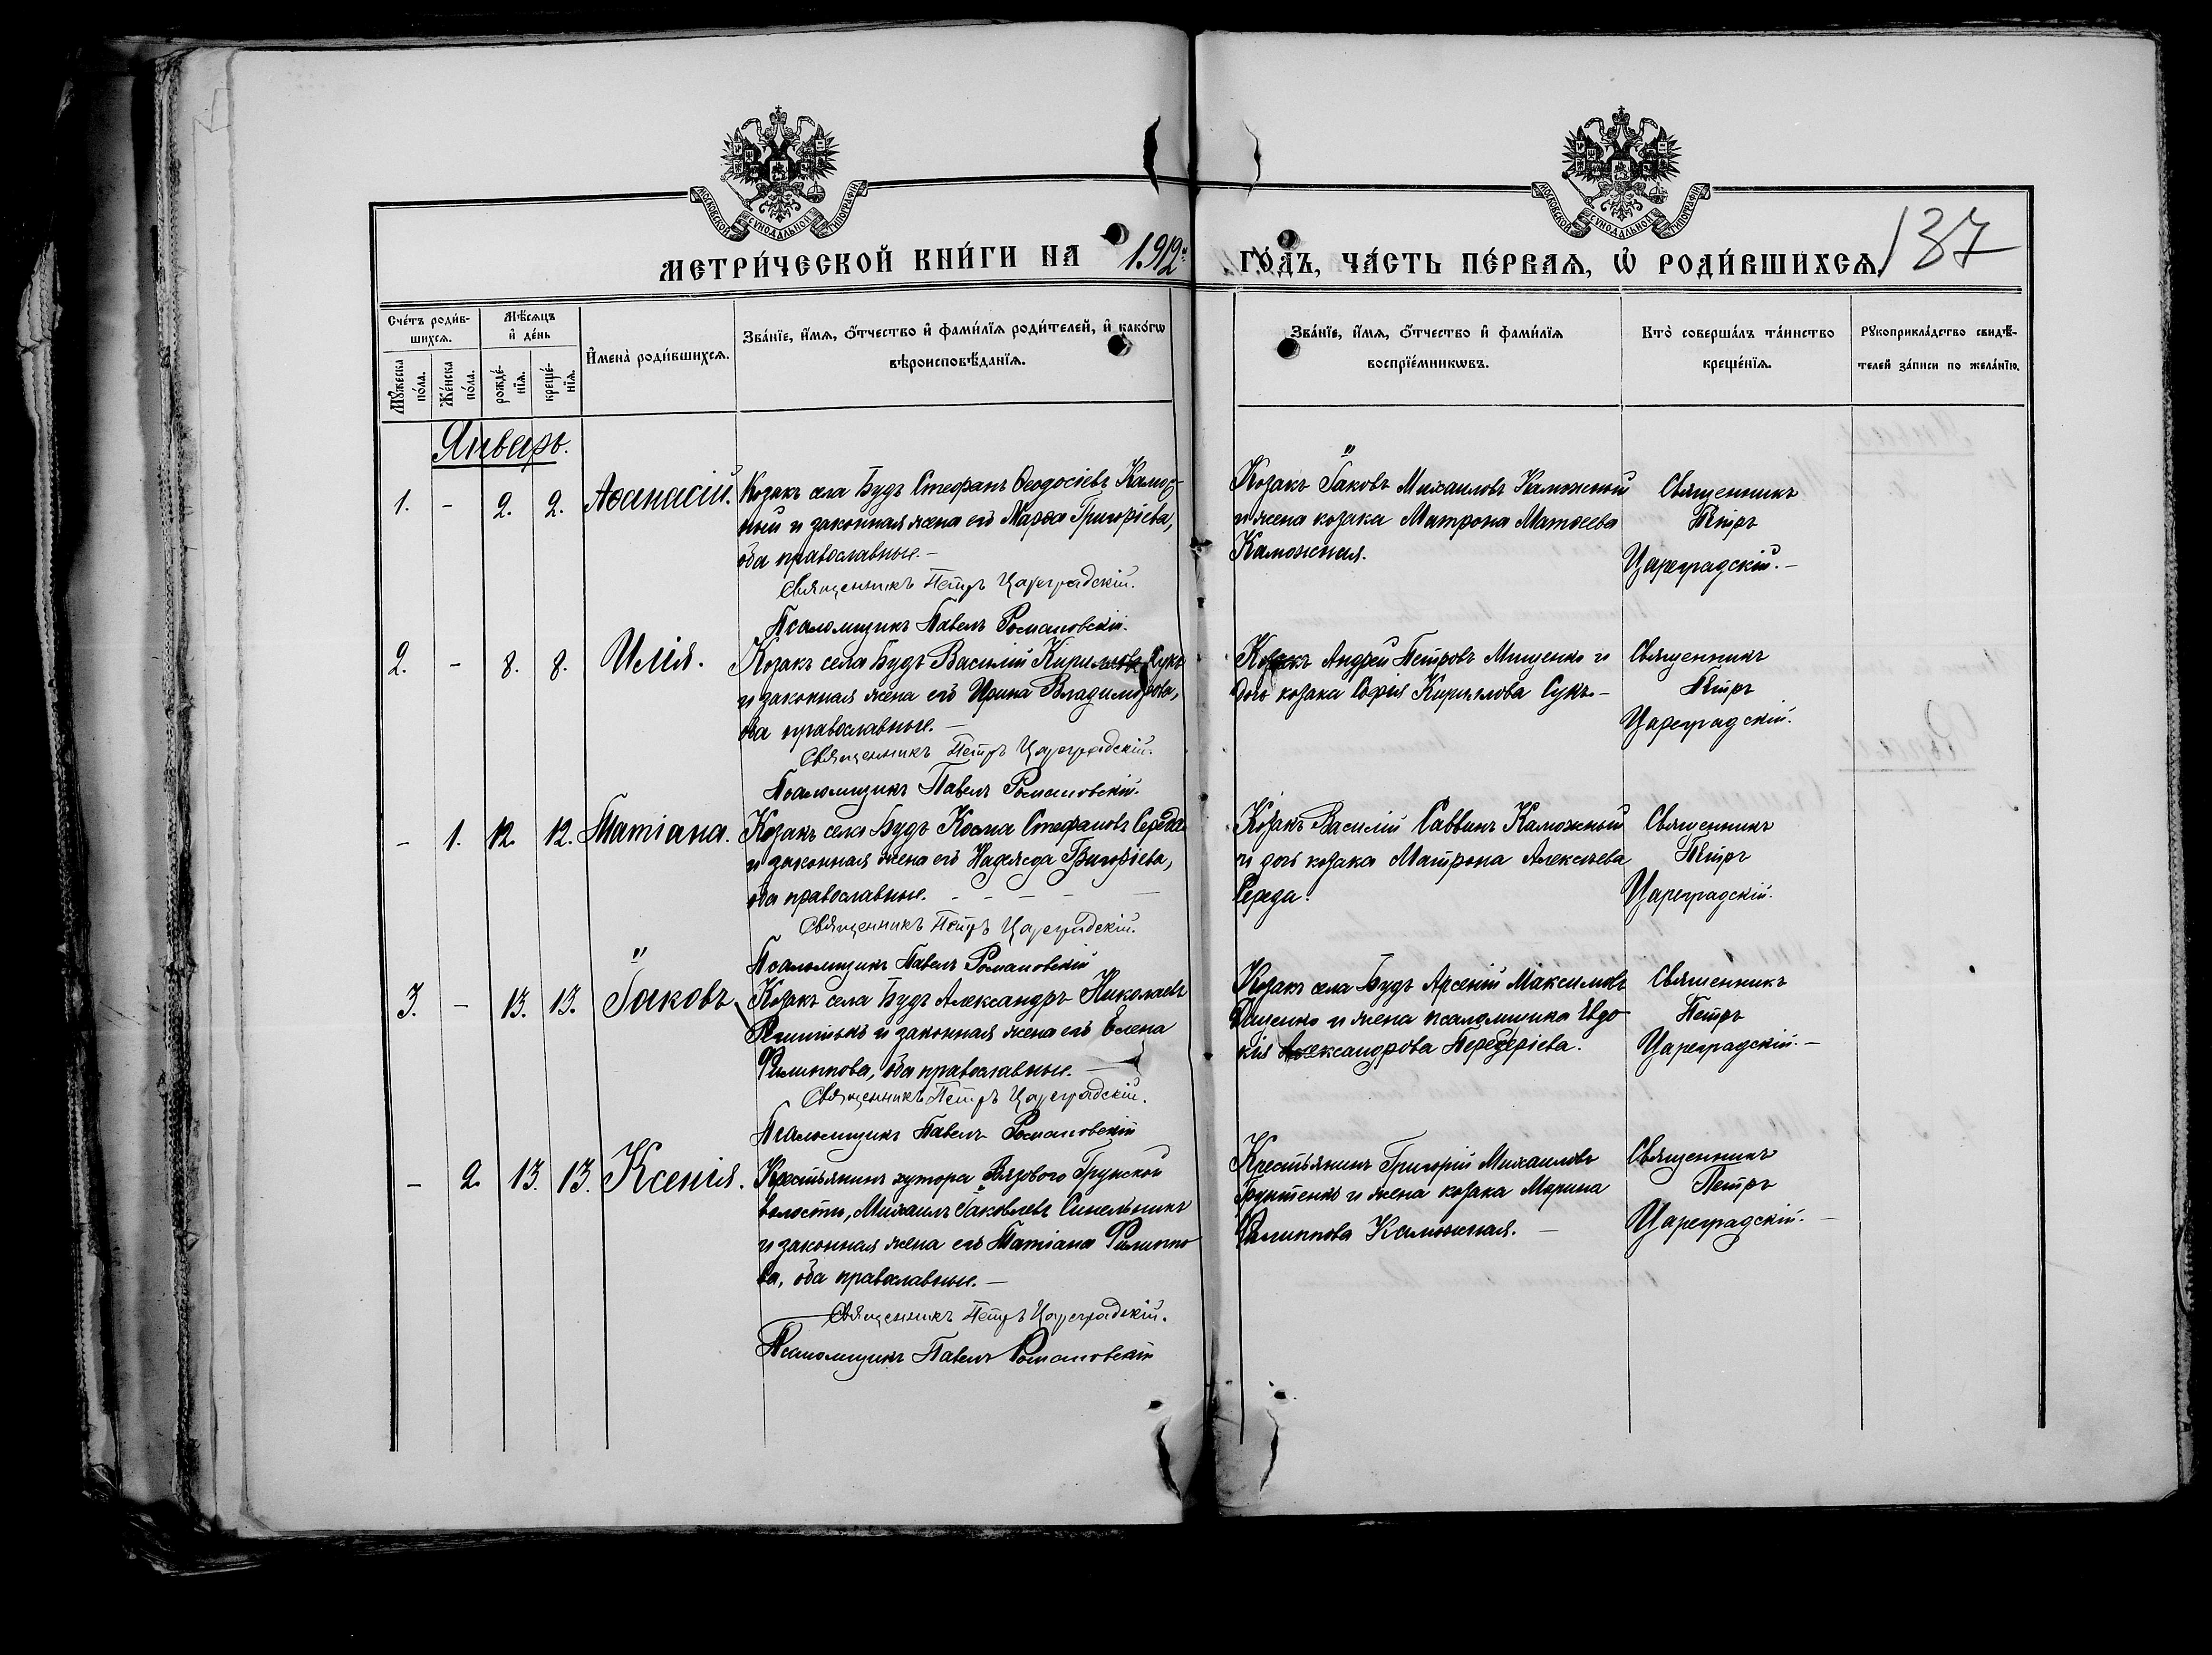 МОСКОВСКОЙ СУНОДАЛЬНОЙ ТИПОГРАФІИ
МОСКОВСКОЙ СУНОДАЛЬНОЙ ТИПОГРАФІИ
МЕТРИ́ЧЕСКОЙ КНИ́ГИ НА 1912 ГО́ДЪ, ЧА́СТЬ ПЕ́РВАѦ, Ѡ РОДИ́ВШИХСѦ. 137
Сче́тъ роди́в-
шихсѧ.
Мꙋ́жеска
по́ла.
Же́нска
по́ла.
Мѣ́сѧцъ
и҆ де́нь
рожде́-
нїѧ.
креще́-
нїѧ.
И҆мена̀ роди́вшихсѧ.
Зва́нїе, и҆́мѧ, ѻ҆́тчество и҆ фами́лїѧ роди́телей, и҆ како́гѡ
вѣроисповѣ́данїѧ.
Зва́нїе, и҆́мѧ, ѻ҆́тчество и҆ фами́лїѧ
воспрїе́мникѡвъ.
Кто̀ соверша́лъ та́инство
креще́нїѧ.
Рꙋкоприкла́дство свидѣ́-
телей за́писи по жела́нїю.
Январь.
1. - 2. 2. Аѳанасій.
Козакъ села Будъ Стефанъ Ѳеодосіевъ Калюж-
ный и законная жена его Марѳа Григоріева,
оба православные. -
Священникъ Петръ Цареградскій.
Псаломщикъ Павелъ Романовскій.
Козакъ Іаковъ Михаиловъ Калюжный
и жена козака Матрона Матѳеева
Калюжная.
Священникъ
Петръ
Цареградскій. -
2. - 8. 8. Илія.
Козакъ села Будъ Василій Кирилловъ Сукъ
и законная жена его Ирина Владимірова,
оба православные. -
Священникъ Петръ Цареградскій.
Псаломщикъ Павелъ Романовскій.
Козакъ Андрей Петровъ Мищенко и
дочь козака Софія Кириллова Сукъ. -
Священникъ
Петръ
Цареградскій.
- 1. 12. 12. Татіана.
Козакъ села Будъ Косма Стефановъ Середа
и законная жена его Надежда Григоріева,
оба православные. - - - - -
Священникъ Петръ Цареградскій.
Псаломщикъ Павелъ Романовскій
Козакъ Василій Саввинъ Калюжный
и дочь козака Матрона Алексѣева
Середа.
Священникъ
Петръ
Цареградскій.
3. - 13. 13. Іаковъ
Козакъ села Будъ Александръ Николаевъ
и законная жена его Елена
Филиппова, оба православные. -
Священникъ Петръ Цареградскій.
Псаломщикъ Павелъ Романовскій
Козакъ села Будъ Арсеній Максимовъ
и жена псаломщика Евдо-
кія Александрова Передеріева.
Священникъ
Петръ
Цареградскій. -
- 2. 13. 13. Ксенія.
Крестьянинъ хутора Вязового Грунской
волости, Михаилъ Іаковлевъ Синельникъ
и законная жена его Татіана Филиппо
ва, оба православные. -
Священникъ Петръ Цареградскій.
Псаломщикъ Павелъ Романовскій
Крестьянинъ Григорій Михаиловъ
и жена козака Марина
Филиппова Калюжная. -
Священникъ
Петръ
Цареградскій. -